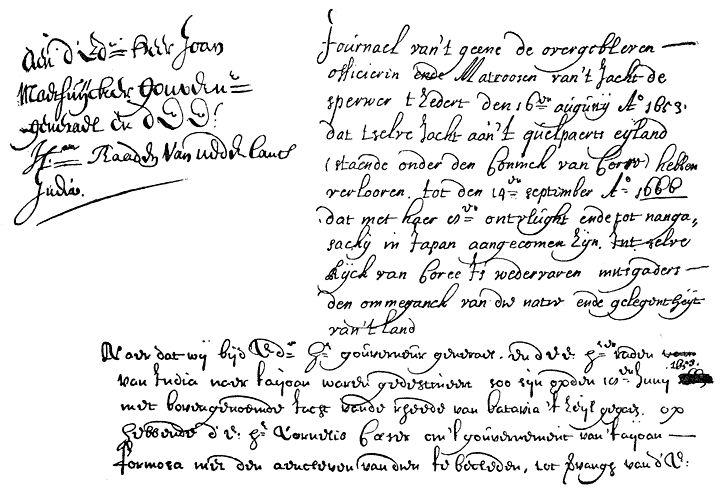 Aen d'Ed:ⁿ heer Joan
Maetsuijcker gouvern:ʳ
generael en d'E E:
H:ʳᵉⁿ Raaden van nederlants
India.
Journael van't geene de overgebleven
officieren ende Matroosen van't Jacht de
sperwer 't zedert den 16:ᵉⁿ augustij Aº 1653.
dat tselve Jacht aan't quelpaerts eijland
(staende onder den Coninck van Coree) hebben
verlooren. tot den 14:ᵉⁿ september Aº 1666
dat met haer 8:ᵉⁿ ontvlught ende tot nanga„
sackij in Japan aangecomen zijn. Int selve
Rijck van Coree is wedervaren mitsgaders
den ommeganck van die natie ende gelegentheijt
van't land
Naer dat wij bij d'Ed:ⁿ H:ʳ gouverneur generael. en d'E E: H:ʳᵉⁿ raden
van India naer taijoan waren gedestineert soo sijn op den 18:ᵉⁿ Junij 1653.
met bovengenoemde Jacht vande rheede van batavia 't zeijl gegaen. op
hebbende d'E: H:ʳ Cornelis Caeser om 't gouvernement van taijoan
formosa met den aencleven van dien te becleden, tot vervangh van d'E: